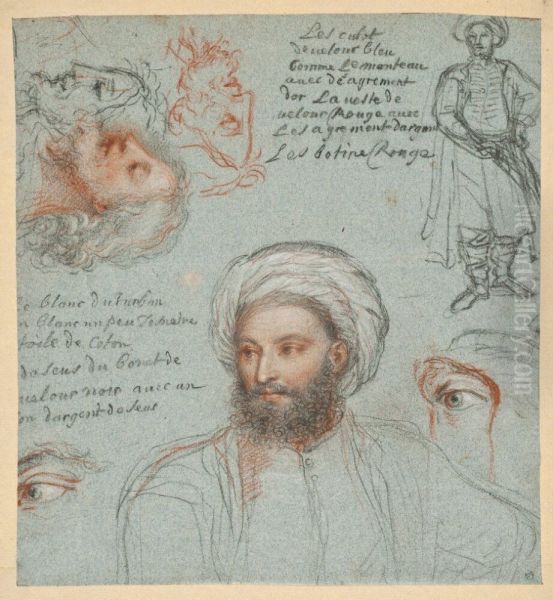 Les culot
de velour bleu
Comme Le monteau
auec de agrement
dor La veste de
velour Rouge auec
Les agrement dargan
Les botine Rouge
le blanc du turban
n blanc un peu
toile de Coton
da seus du bonet de
velour noir auec un
on dargent de seus